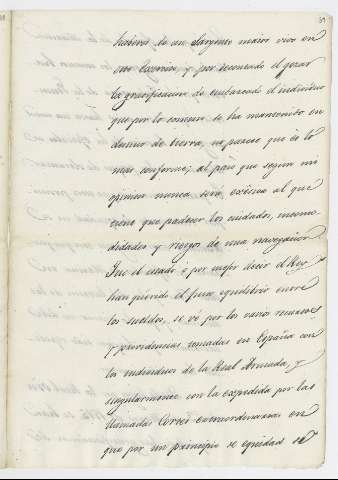 haberes de un Sargento maior vivo en
y por reconocido el gozar
la gratificacion de embarcado el individuo
que por lo comun se ha mantenido en
de tierra, no parece que es lo
mas conforme; al paso que segun mi
opinion nunca será exêsiva al que
tiene que padecer los cuidados, incomo
didades y riezgo de una navegacion
Que el estado ó por mejor decir el Rey
han querido el justo equilibrio entre
los sueldos, se vé por las varias
y providencias tomadas en España con
los individuos de la Real Armada, y
singularmente con la expedida por las
llamadas Cortes extraordinarias en
que por un principio de equidad se